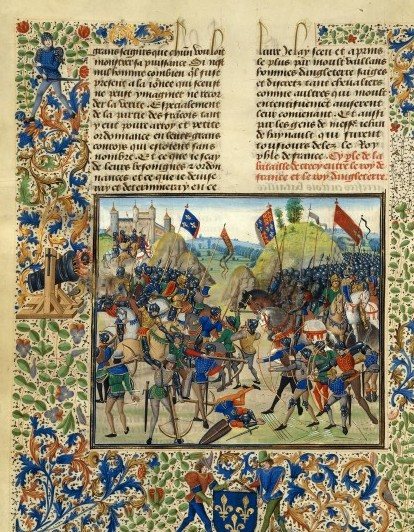 grans seigneurs que chun vouloit
monstrer sa puissance Si nest
nul homme combien quil fust
present a la iournee qui sceust
ne peust ymaginer ne recor
der la verite Et especialement
de la partie des francois tant
y eut poure arroy et petite
ordonance en leurs grans
conrois qui estoient sans
nombre Et ce que ie scay
de leurs besongnes
et ce que ie deuise
ray et determineray en ce
liure ie lay sceu et aprins
le plus par moult vaillans
hommes dangleterre saiges
et discretz tant cheualiers
comme aultres qui moult
ententifuement auiserent
leur conuenant Et aussi
par les gens de messe iehan
de haynault qui furent
tousiours delez le Roy
phle de france Cy ple de la
bataille de crecy entre le roy de
france et le roy dangleterre